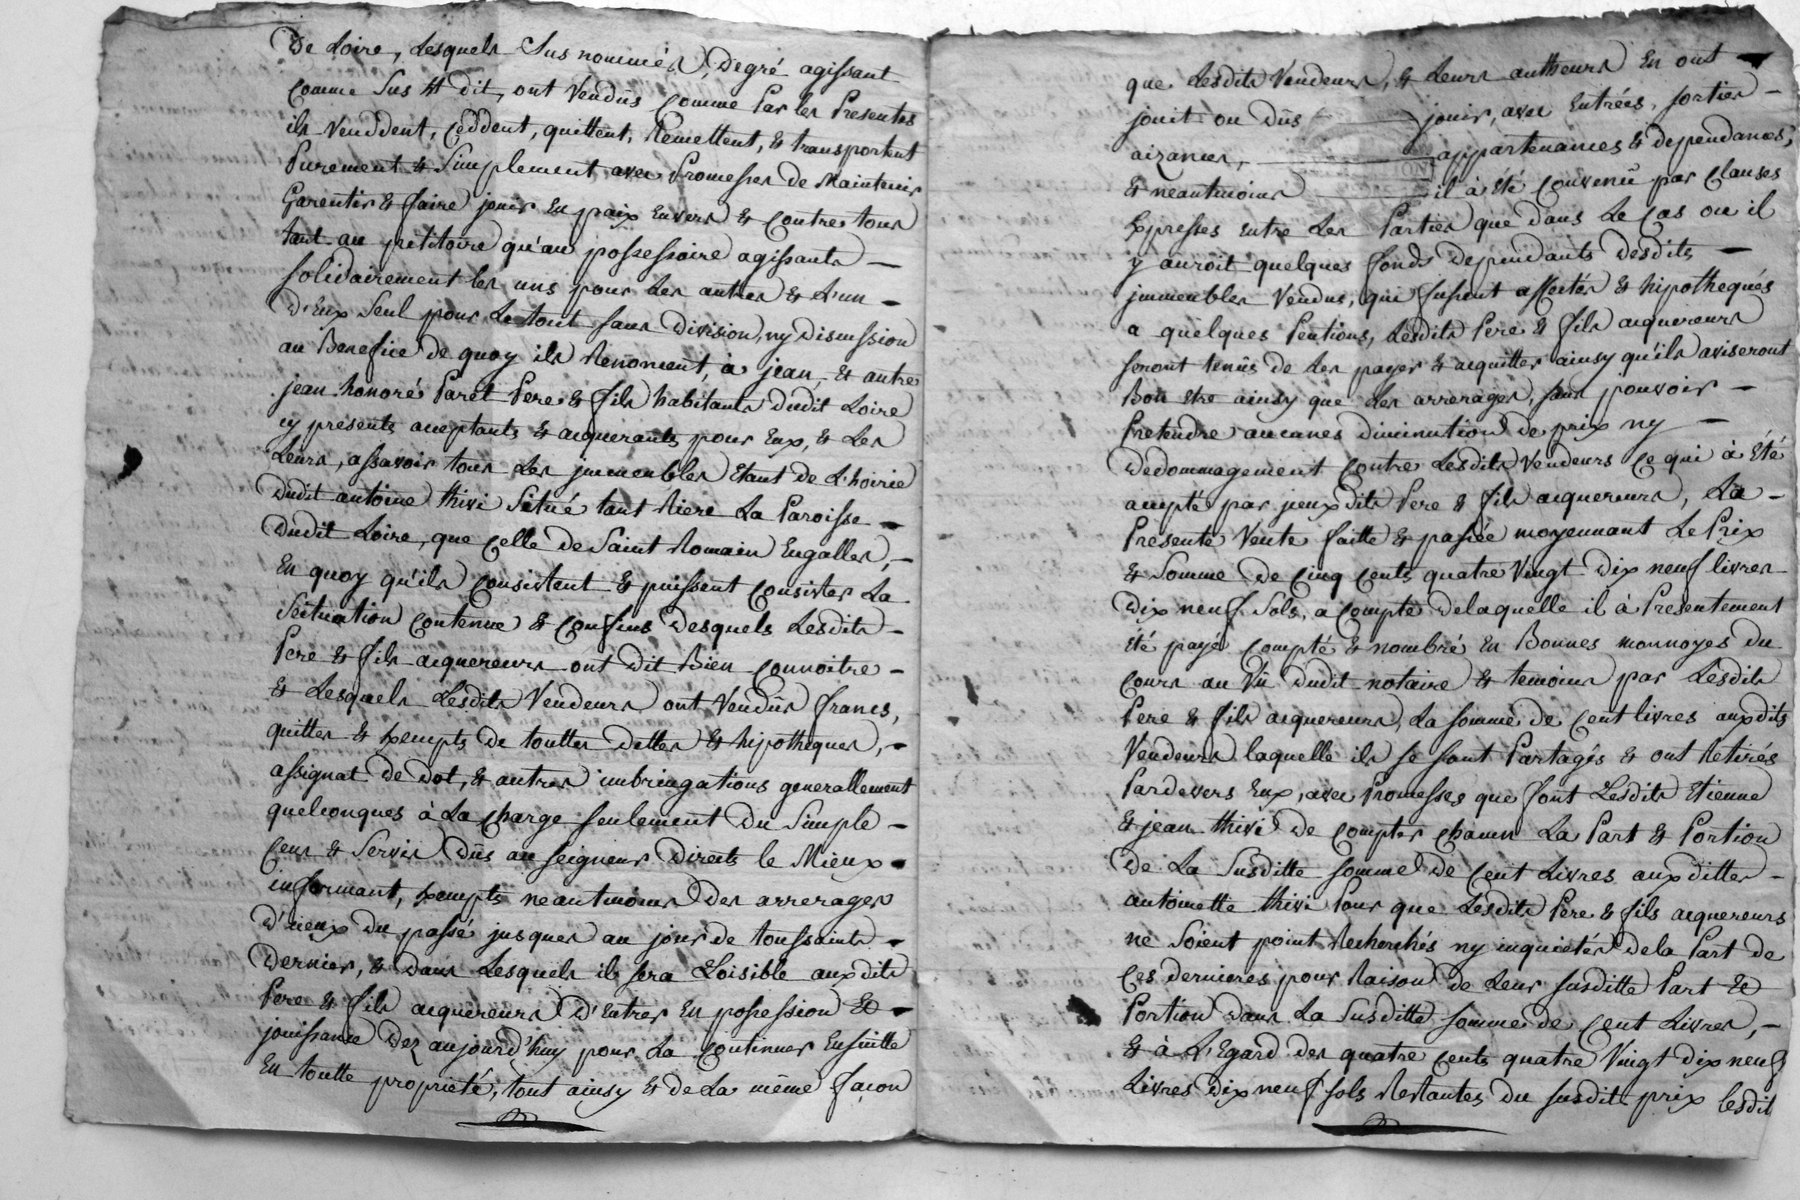 De Loire, Lesquels Sus nommés, de gré agissant
Comme Sus Est dit, ont Vendûs Comme Par les Presentes
ils Venddent, Ceddent, quittent, Remettent, & transportent
Purement & Simplement avec Promesses de Maintenir
Garentir & faire jouir En paix Envers & Contre tous
tant au petitoire qu'au possessoire agissants —
solidairement les uns pour Les autres & L'un —
D'Eux Seul pour Le tout sans Division, ny Discussion
au Benefice de quoy ils Renoncent, à jean, & autre
jean honoré Paret Pere & fils habitants dudit Loire
cy presents acceptants & acquerants pour Eux, & Les
Leurs, assavoir tous Les jmmeubles Etant de L'hoirie
Dudit antoine thivi Situé tant Riere La Paroisse —
Dudit Loire, que Celle de Saint Romain Engalles, —
En quoy qu'ils Consistent & puissent Consister La
Scituation Contenue & Confins Desquels Lesdits —
Pere & fils acquereurs ont Dit Bien Connoitre —
& Lesquels Lesdits Vendeurs ont Vendûs francs,
quittes & Exempts de touttes dettes & hipotheques, —
assignat de Dot, & autres imbringations generallement
quelconques à La Charge seulement Du Simple —
Cens & Servis Dûs au seigneur Direcls le Mieux —
informant, Exempts neantmoins Des arrerages
D'iceux du passé jusques au jour de toussaints —
Dernier, & Dans Lesquels il sera Loisible auxdits
Pere & fils acquereurs D'Entrer En possession & —
jouissance Dez aujourd'huy pour La Continuer Ensuitte
En toutte proprieté, tout ainsy & de La même façon
que Lesdits Vendeurs, & Leurs autheurs En ont —
jouit ou Dûs — jouir, avec Entrées, sorties —
aizances, — appartenances & dependances,
& neantmoins — il à Eté Convenû par Clauses
Expresses Entre Les Parties que dans Le Cas ou il
y auroit quelques fonds Dependants Desdits —
jmmeubles Vendus, qui fussent affectés & hipothequés
a quelques Pentions, Lesdits Pere & fils acquereurs
seront tenûs de Les payer & acquitter ainsy qu'ils aviseront
Bon Etre ainsy que Les arrerages, sans pouvoir —
Pretendre aucunes Diminution de prix ny —
Dedommagement Contre Lesdits Vendeurs Ce qui à Eté
accepté par jceux dits Pere & fils acquereurs, La —
Presente Vente faitte & passée moyennant Le Prix
& Somme De Cinq Cents quatre Vingt Dix neuf livres
Dix neuf Sols, a Compte Delaquelle il à Presentement
Eté payé Compté & nombré En Bonnes monnoyes Du
Cours au Vû Dudit notaire & temoins par Lesdits
Pere & fils acquereurs, La somme de Cent livres auxdits
Vendeurs laquelle ils se sont Partagés & ont Retirés
Pardevers Eux, avec Promesses que font Lesdits Etienne
& jean thivi De Compter Chacun La Part & Portion
De La Susditte somme De Cent Livres aux dittes —
antoinette thivi Pour que Lesdits Pere & fils acquereurs
ne Soient point Recherchés ny inquietés Dela Part de
Ces dernieres pour Raison de Leur susditte Part &
Portion Dans La Susditte somme de Cent Livres, —
& à L'Egard des quatre Cents quatre Vingt Dix neuf
Livres Dix neuf sols Restantes Du susdit prix Lesdit